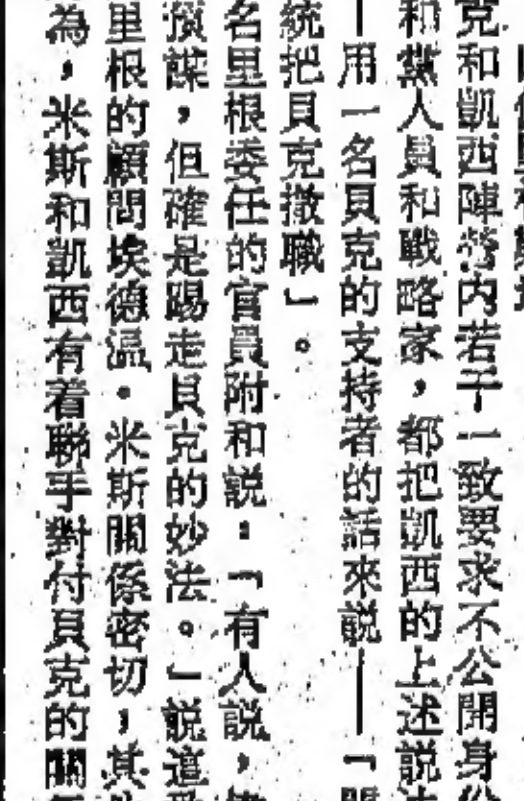 克和凱西陣營內若干一致要求不公開身
和黨人員和戰略家，都把凱西的上述說
—用一名貝克的支持者的話來說——「
統把貝克撤職」。
名里根委任的官員附和說：「有人說，
預謀，但確是踢走貝克的妙法。」說這
里根的顧問埃德溫·米斯關係密切，其
為，米斯和凱西有着聯手對付貝克的關